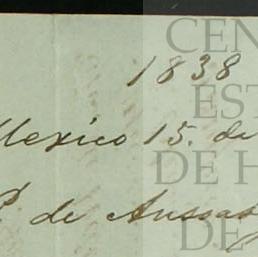 CEN
1838
EST
Mexico 15. de
DE H
P. de Anssa
DE